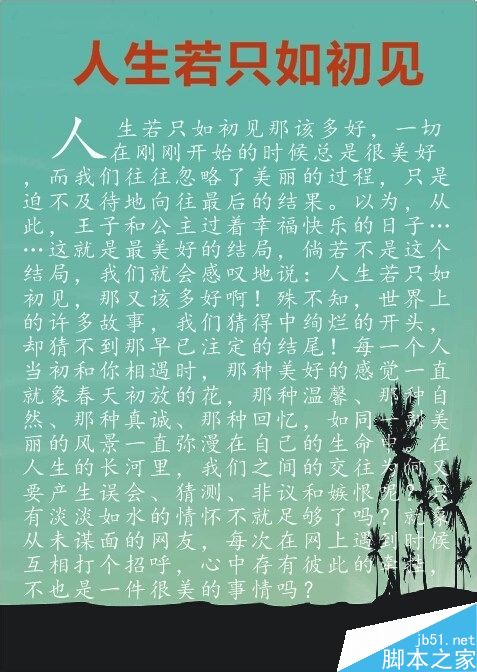 人生若只如初见
人生若只如初见那该多好，一切
在刚刚开始的时候总是很美好
，而我们往往忽略了美丽的过程，只是
迫不及待地向往最后的结果。以为，从
此，王子和公主过着幸福快乐的日子…
…这就是最美好的结局，倘若不是这个
结局，我们就会感叹地说：人生若只如
初见，那又该多好啊！殊不知，世界上
的许多故事，我们猜得中绚烂的开头，
却猜不到那早已注定的结尾！每一个人
当初和你相遇时，那种美好的感觉一直
就象春天初放的花，那种温馨、那种自
然、那种真诚、那种回忆，如同一副美
丽的风景一直弥漫在自己的生命中。在
人生的长河里，我们之间的交往为何又
要产生误会、猜测、非议和嫉恨呢？只
有淡淡如水的情怀不就足够了吗？就象
从未谋面的网友，每次在网上遇到时候
互相打个招呼，心中存有彼此的牵挂，
不也是一件很美的事情吗？
jb51.net
脚本之家